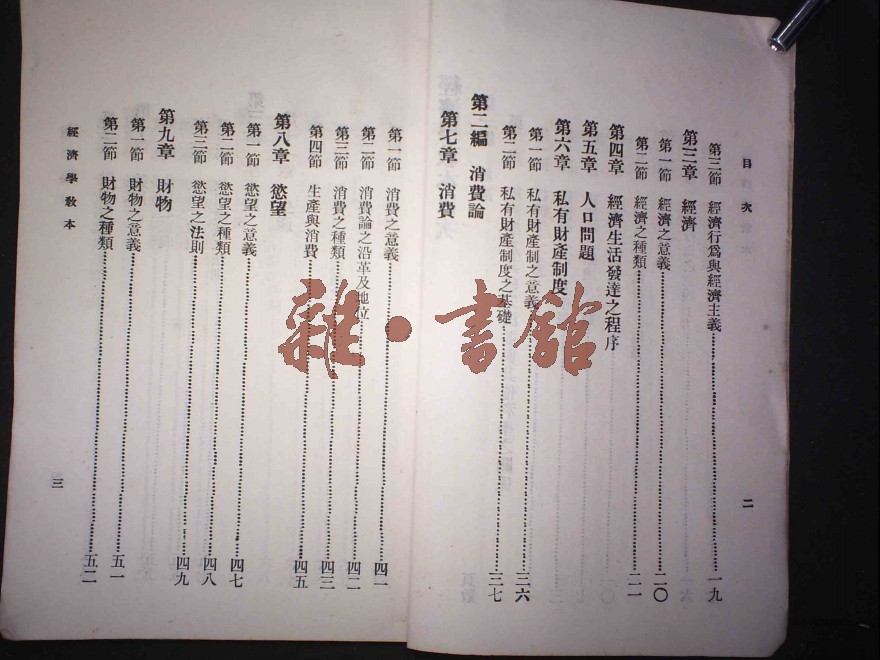 目次
第三節 經濟行爲與經濟主義……一九
第三章 經濟
第一節 經濟之意義……二〇
第二節 經濟之種類……二一
第四章 經濟生活發達之程序
第五章 人口問題
第六章 私有財產制度
第一節 私有財產制之意義……三六
第二節 私有財產制度之基礎……三七
二
第二編 消費論
第七章 消費
第一節 消費之意義……四一
第二節 消費論之沿革及地位……四二
第三節 消費之種類……四三
第四節 生產與消費……四五
第八章 慾望
第一節 慾望之意義……四七
第二節 慾望之種類……四八
第三節 慾望之法則……四九
第九章 財物
第一節 財物之意義……五一
第二節 財物之種類……五二
經濟學敎本
三
雜·書館